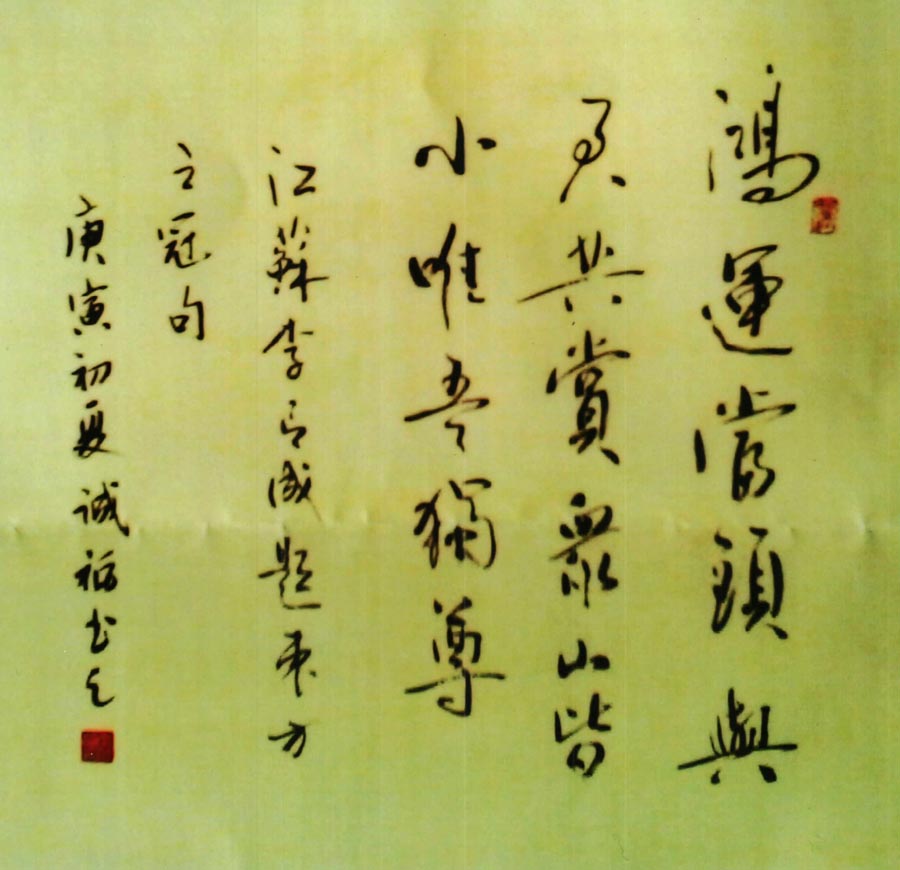 鴻運當頭與
君共賞衆山皆
小唯吾獨尊
江蘇李成題東方
之冠句
庚寅初夏誠书